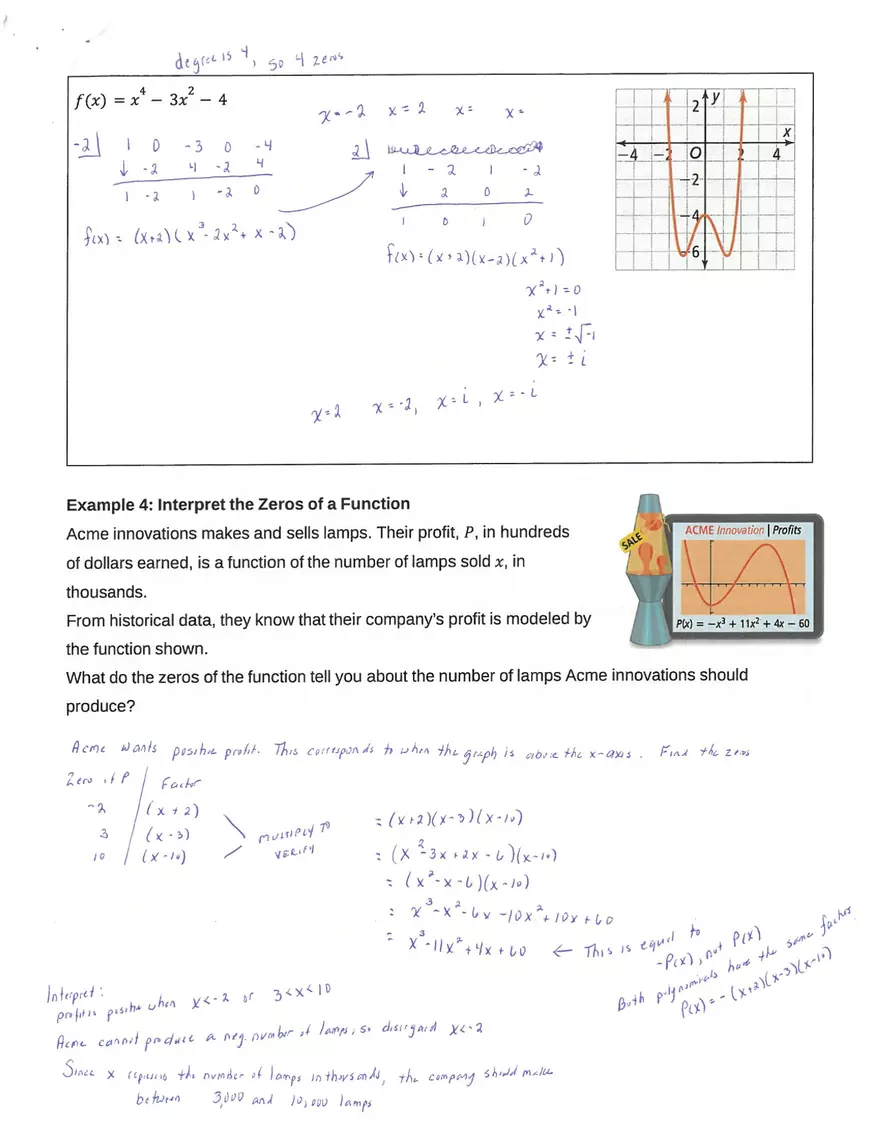 degree is 4, so 4 zeros
f(x) = x⁴ − 3x² − 4
x = -2 x = 2 x = x =
-2 | 1 0 -3 0 -4
↓ -2 4 -2 4
1 -2 1 -2 0
f(x) = (x+2)(x³ - 2x² + x - 2)
2 |
1 -2 1 -2
↓ 2 0 2
1 0 1 0
f(x) = (x+2)(x-2)(x²+1)
x²+1 = 0
x² = -1
x = ±√-1
x = ± i
x = 2 x = -2, x = i, x = -i
2 y
x
−4 −2 O 2 4
−2
−4
−6
Example 4: Interpret the Zeros of a Function
Acme innovations makes and sells lamps. Their profit, P, in hundreds
of dollars earned, is a function of the number of lamps sold x, in
thousands.
From historical data, they know that their company's profit is modeled by
the function shown.
What do the zeros of the function tell you about the number of lamps Acme innovations should
produce?
SALE
ACME Innovation | Profits
P(x) = −x³ + 11x² + 4x − 60
Acme wants positive profit. This corresponds to when the graph is above the x-axis. Find the zeros
Zero of P Factor
-2 (x + 2)
3 (x - 3)
10 (x - 10)
MULTIPLY TO
VERIFY
= (x+2)(x-3)(x-10)
= (x²-3x+2x-6)(x-10)
= (x²-x-6)(x-10)
= x³-x²-6x-10x²+10x+60
= x³-11x²+4x+60 ← This is equal to
-P(x), not P(x)
Both polynomials have the same factor
P(x) = -(x+2)(x-3)(x-10)
Interpret:
profit is positive when x<-2 or 3<x<10
Acme cannot produce a neg. number of lamps, so disregard x<-2
Since x represents the number of lamps in thousands, the company should make
between 3,000 and 10,000 lamps